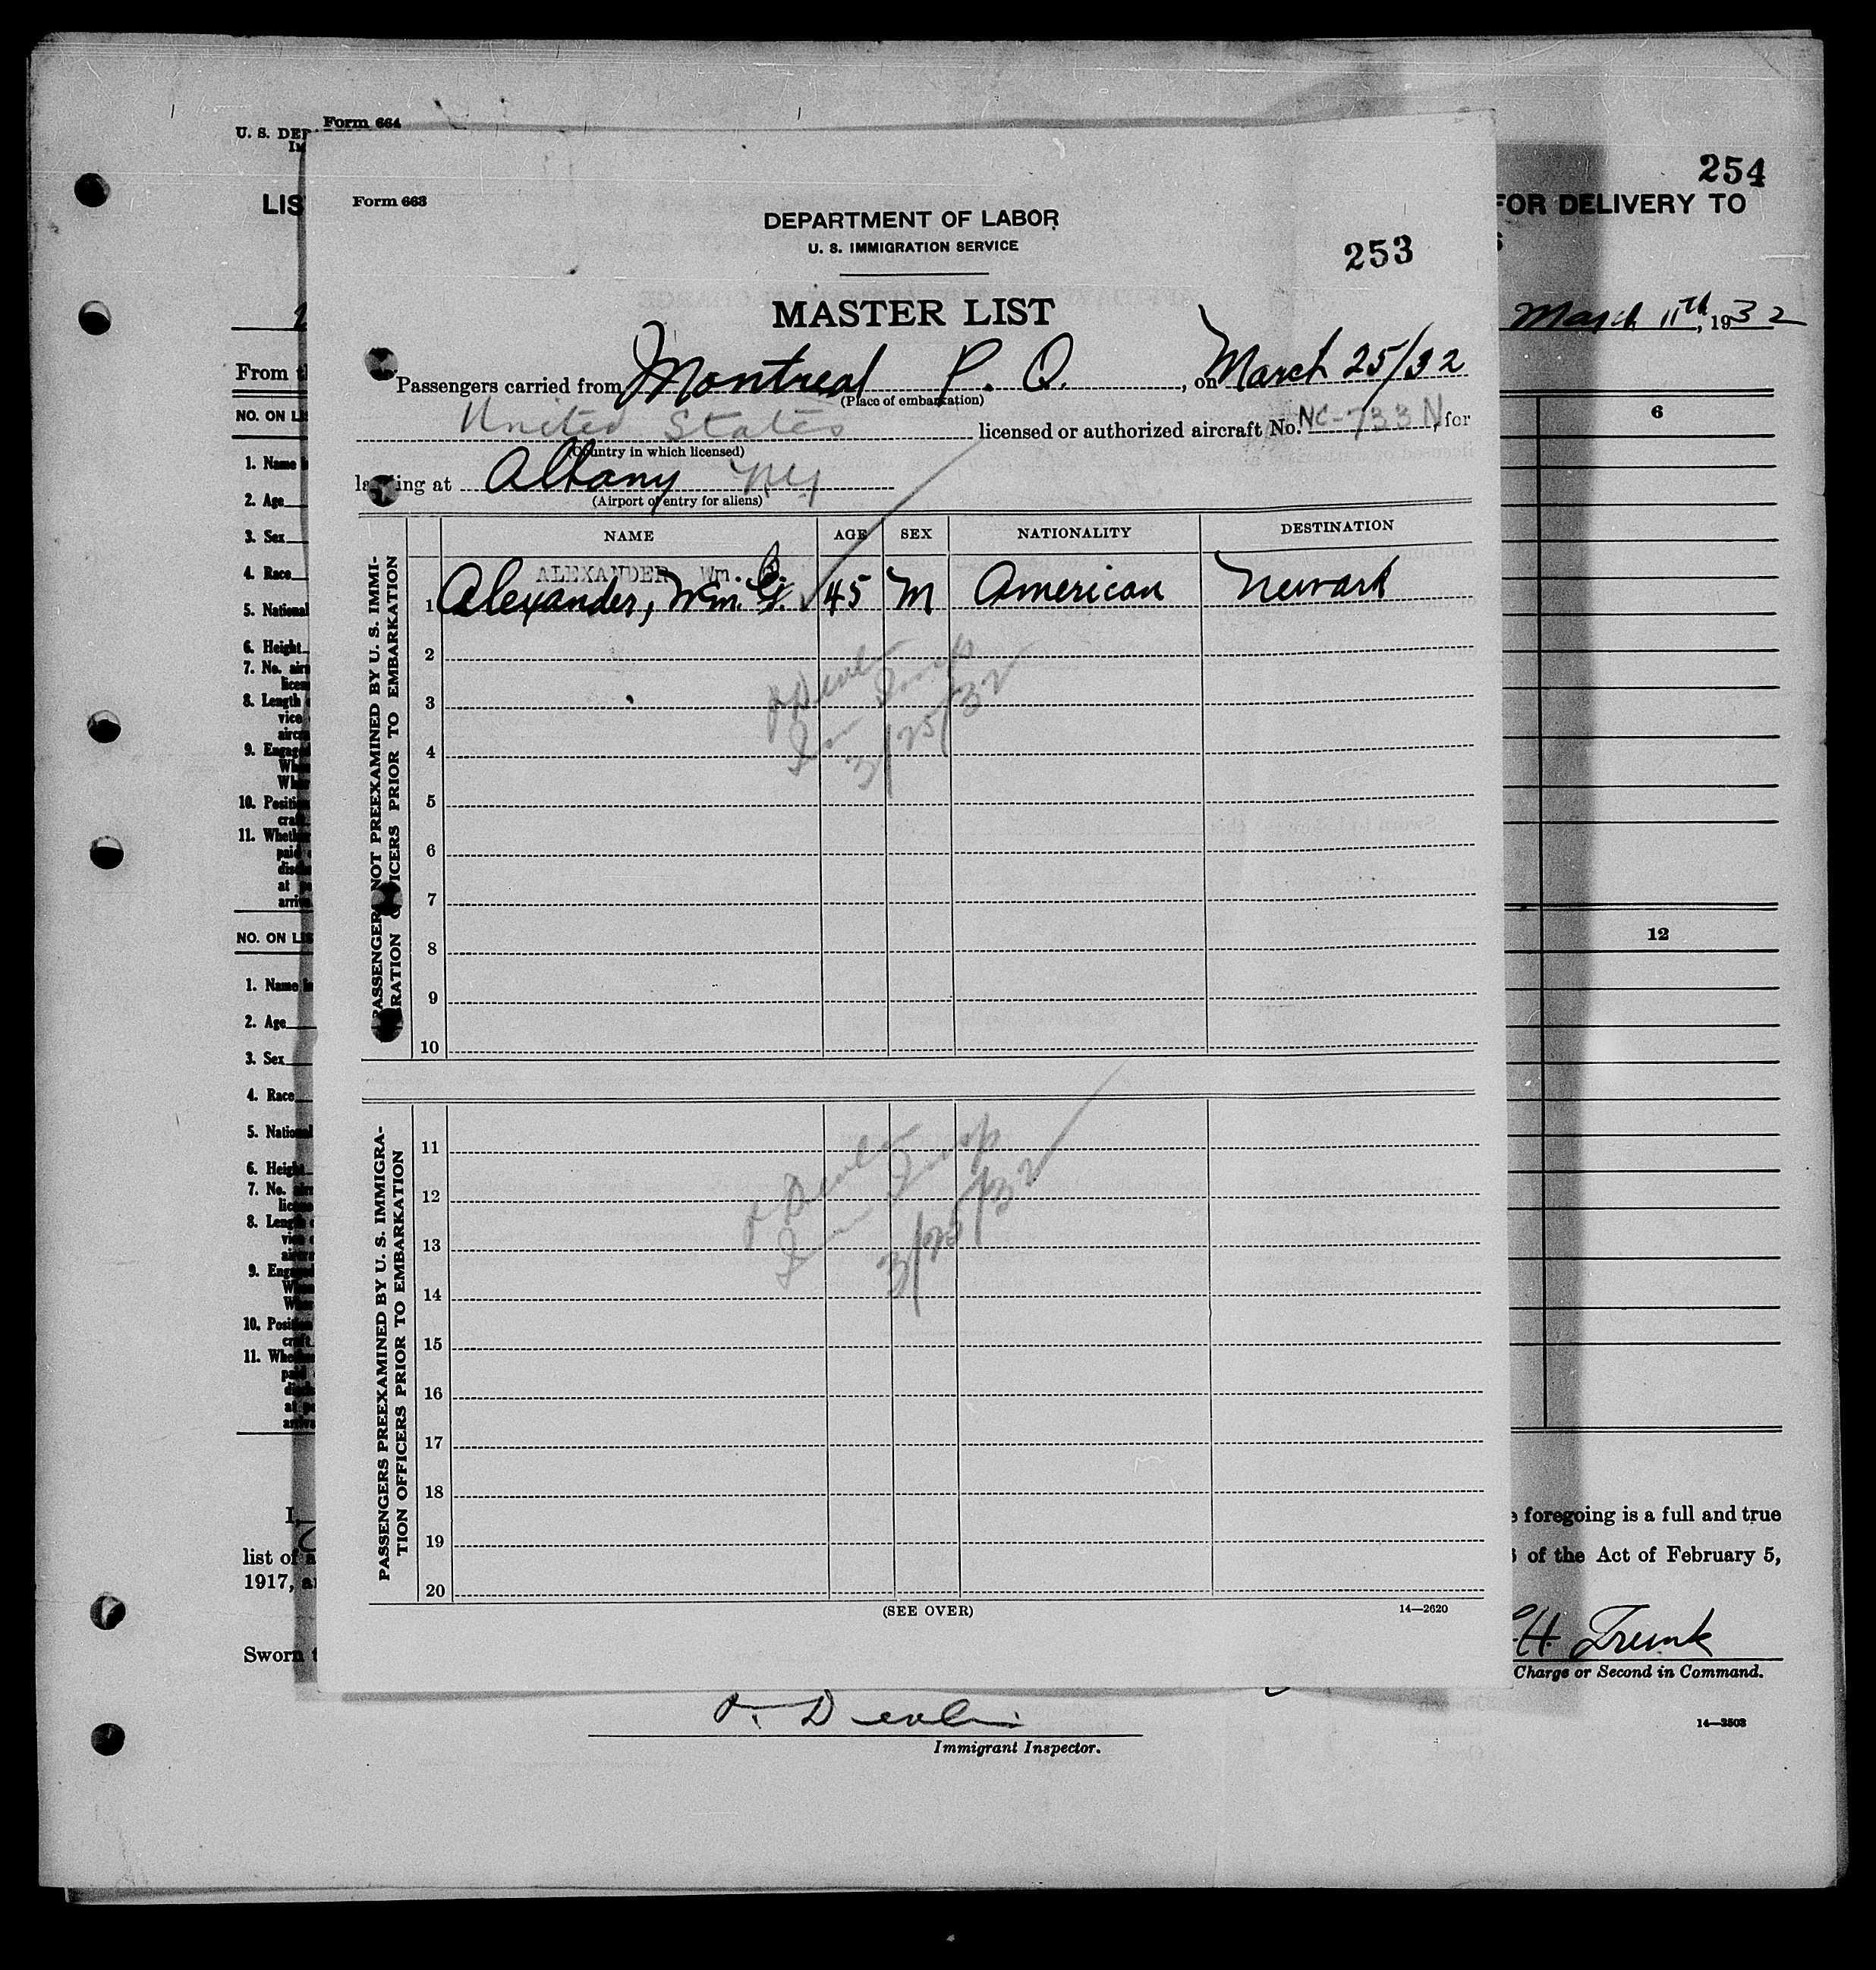 Form 664
U. S. DEP
IM
254
LIS
FOR DELIVERY TO
S
March 11th, 1932
From t
NO. ON LI
6
1. Name
2. Age
3. Sex
4. Race
5. National
6. Height
7. No. air
licen
8. Length
vice
aircr
9. Engaged
Wh
Wh
10. Positi
cra
11. Wheth
paid
disc
at p
arriv
NO. ON LI
12
1. Name
2. Age
3. Sex
4. Race
5. Nation
6. Heigh
7. No.
lice
8. Leng
9. Eng
10. Posi
11. Whe
I,
e foregoing is a full and true
list of a
6 of the Act of February 5,
1917, a
Sworn t
H. Trunk
Charge or Second in Command.
Devlin
Immigrant Inspector.
14—2503
Form 663
DEPARTMENT OF LABOR
U. S. IMMIGRATION SERVICE
253
MASTER LIST
Passengers carried from Montreal P. Q., on March 25/32
(Place of embarkation)
United States licensed or authorized aircraft No. NC-733N, for
(Country in which licensed)
landing at Albany NY
(Airport of entry for aliens)
NAME AGE SEX NATIONALITY DESTINATION
PASSENGERS NOT PREEXAMINED BY U. S. IMMI-
GRATION OFFICERS PRIOR TO EMBARKATION
ALEXANDER Wm. G.
1 Alexander, Wm. G. 45 M American Newark
2
3
4
5
6
7
8
9
10
Devlin
Im Insp
3/25/32
PASSENGERS PREEXAMINED BY U. S. IMMIGRA-
TION OFFICERS PRIOR TO EMBARKATION
11
12
13
14
15
16
17
18
19
20
Devlin
Im Insp
3/25/32
(SEE OVER)
14—2620